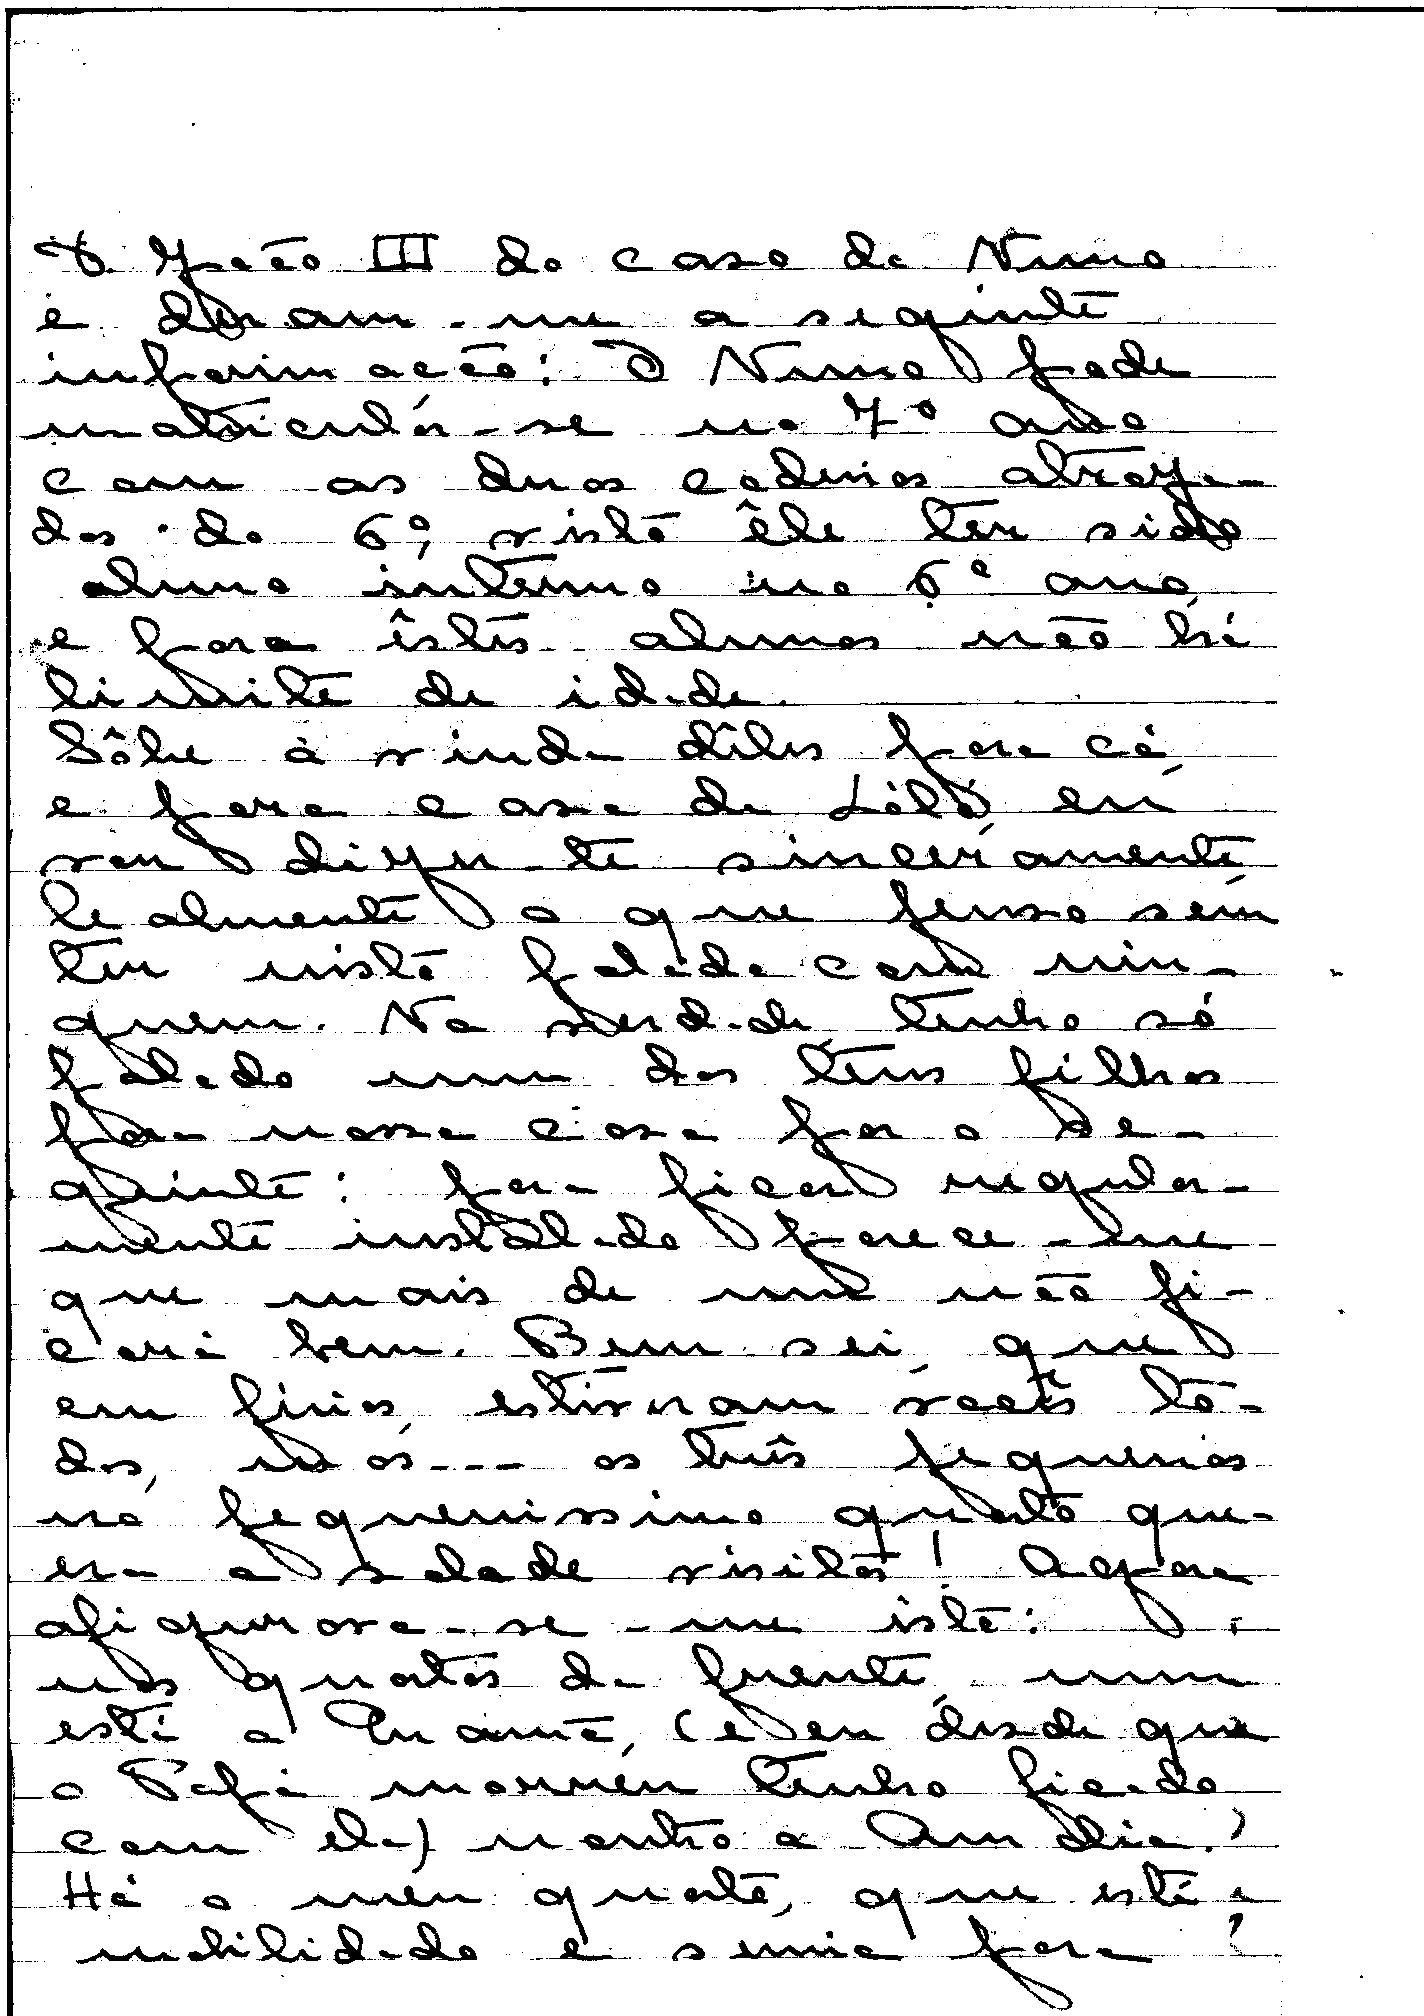 D. João III do caso do Nuno
e deram-me a seginte
informação: O Nuno pode
matriculár-se no 7º ano
com as duas cadeiras atraza-
das do 6º, visto êle ter sido
aluno interno no 6º ano
e para êstes alunos não há
limite de idade.
Sôbre a vinda dêles para cá,
e para casa da Lóló, eu
vou dizer-te sinceramente
lealmente o que penso sem
ter nisto falado com nin-
guem. Na verdade tenho só
falado num dos teus filhos
para nossa casa por o se-
guinte: para ficar regular-
mente instalado parece-me
que mais de um não fi-
cará bem. Bem sei, que
em férias, estiveram vocês to-
dos, mas --- os três pequenos
no pequenissimo quarto que
era a sala de visitas! Agora
afigura-se-me isto:
nos quartos da frente, num
está a Mamã, (e eu desde que
o Papá morreu tenho ficado
com ela) noutro a Amélia.
Há o meu quarto, que está
mobilado e servia para